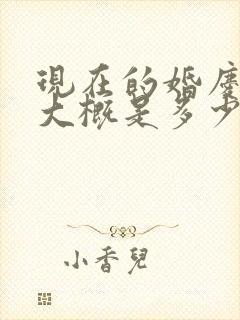 現在的婚慶
大概是多少
小香兒